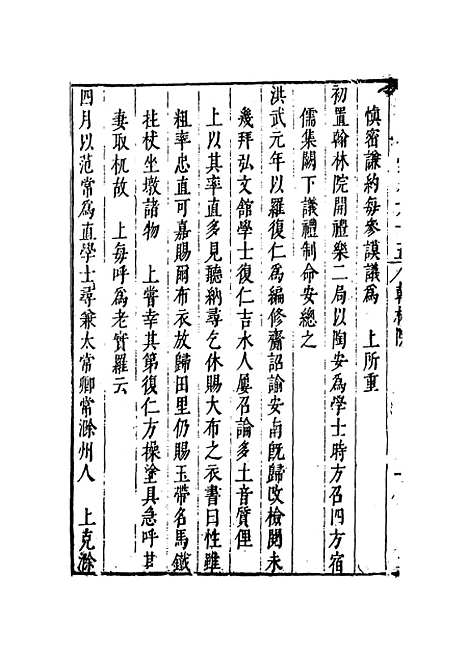 慎密謙約每參謨議為　上所重
初置翰林院開禮樂二局以陶安為學士時方召四方宿
儒集闕下議禮制命安總之
洪武元年以羅復仁為編修齎詔諭安南既歸改檢閱未
幾拜弘文館學士復仁吉水人屢召論多土音質俚
上以其率直多見聽納尋乞休賜大布之衣書曰性雖
粗率忠直可嘉賜爾布衣放歸田里仍賜玉帶名馬鐵
拄杖坐墩諸物　上嘗幸其第復仁方操塗具急呼其
妻取杌故　上每呼為老實羅云
四月以范常為直學士尋兼太常卿常滁州人　上克滁